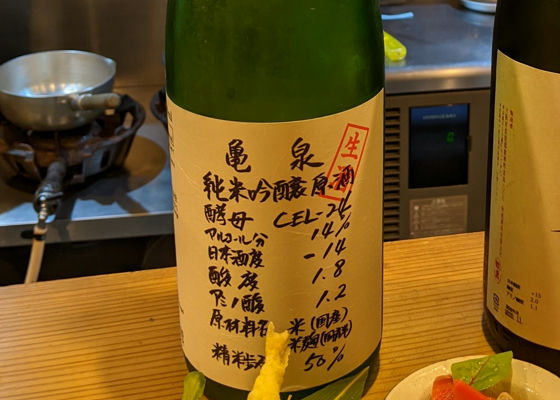 亀泉
生酒
純米吟醸原酒
酵母 CEL-24
アルコール分 14%
日本酒度 -14
酸度 1.8
アミノ酸 1.2
原材料名 米(国産)
米麹(国産米)
精米歩合 50%